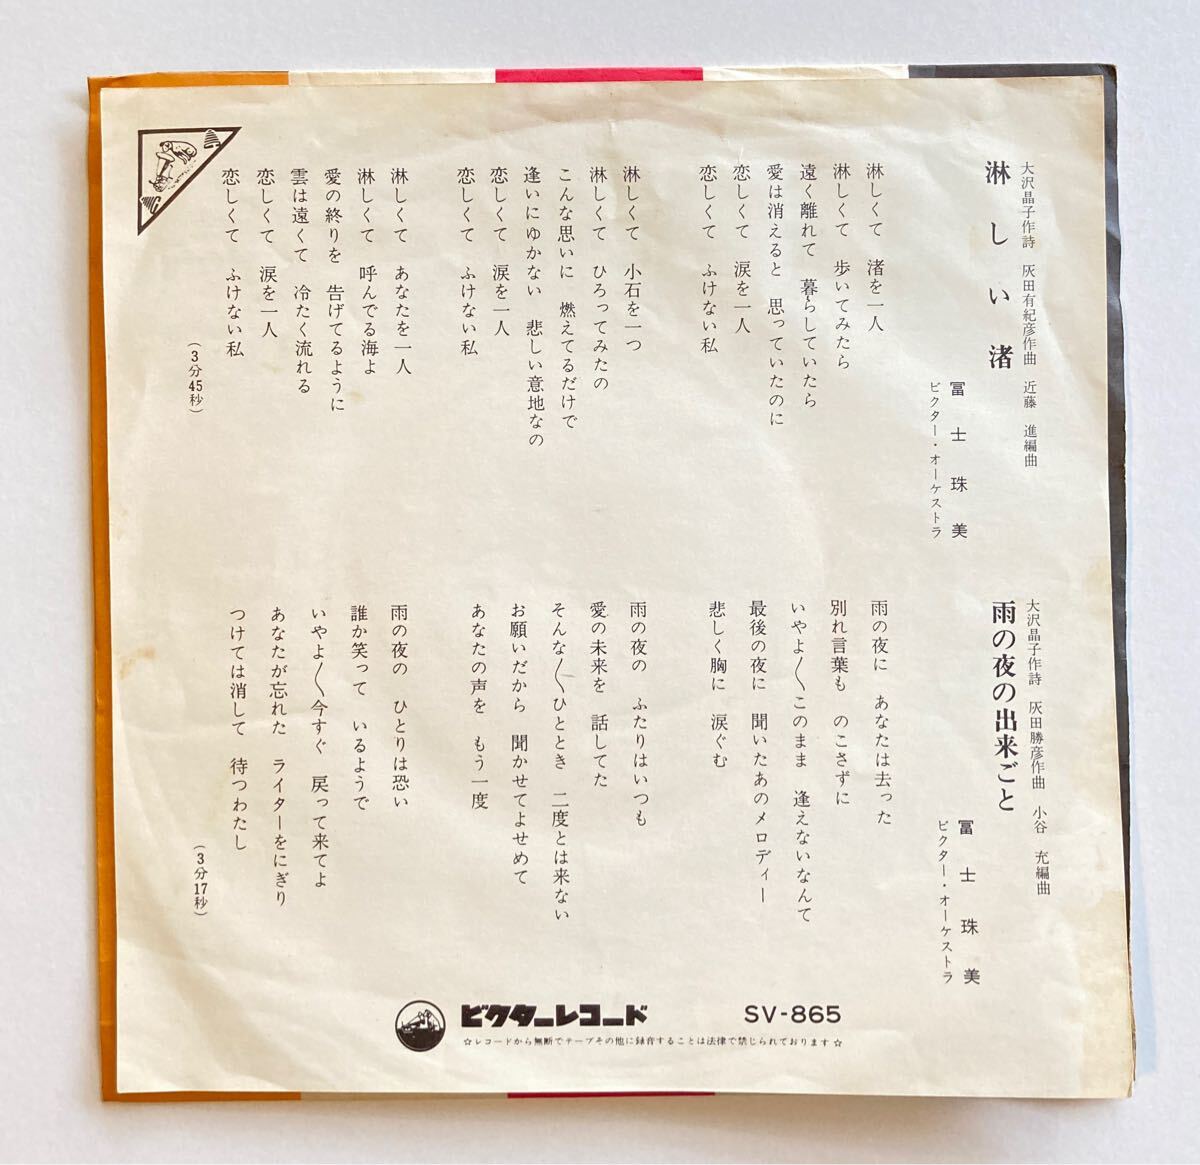 大沢晶子作詩　灰田有紀彦作曲　近藤　進編曲
淋しい渚
冨士珠美
ビクター・オーケストラ
淋しくて　渚を一人
淋しくて　歩いてみたら
遠く離れて　暮らしていたら
愛は消えると　思っていたのに
恋しくて　涙を一人
恋しくて　ふけない私
淋しくて　小石を一つ
淋しくて　ひろってみたの
こんな思いに　燃えてるだけで
逢いにゆかない　悲しい意地なの
恋しくて　涙を一人
恋しくて　ふけない私
淋しくて　あなたを一人
淋しくて　呼んでる海よ
愛の終りを　告げてるように
雲は遠くて　冷たく流れる
恋しくて　涙を一人
恋しくて　ふけない私
（3分45秒）
大沢晶子作詩　灰田勝彦作曲　小谷　充編曲
雨の夜の出来ごと
冨士珠美
ビクター・オーケストラ
雨の夜に　あなたは去った
別れ言葉も　のこさずに
いやよ〱このまま　逢えないなんて
最後の夜に　聞いたあのメロディー
悲しく胸に　涙ぐむ
雨の夜の　ふたりはいつも
愛の未来を　話してた
そんな〱ひととき　二度とは来ない
お願いだから　聞かせてよせめて
あなたの声を　もう一度
雨の夜の　ひとりは恐い
誰か笑って　いるようで
いやよ〱今すぐ　戻って来てよ
あなたが忘れた　ライターをにぎり
つけては消して　待つわたし
（3分17秒）
ビクターレコード　SV-865
☆レコードから無断でテープその他に録音することは法律で禁じられております☆